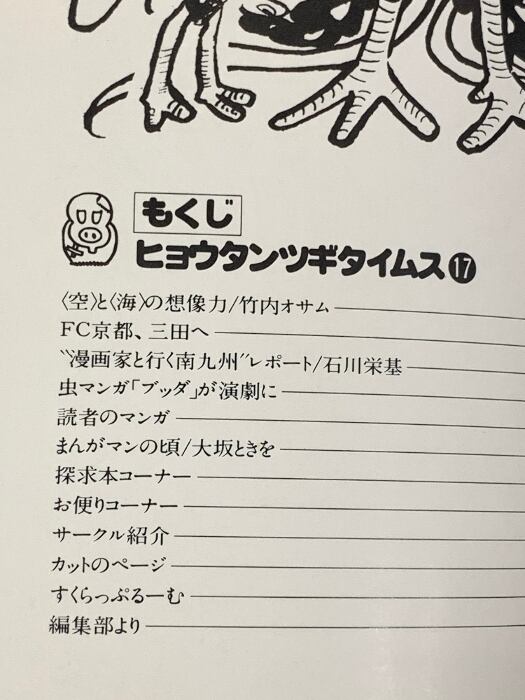 もくじ
ヒョウタンツギタイムス⑰
〈空〉と〈海〉の想像力/竹内オサム
FC京都、三田へ
〝漫画家と行く南九州〟レポート/石川栄基
虫マンガ「ブッダ」が演劇に
読者のマンガ
まんがマンの頃/大坂ときを
探求本コーナー
お便りコーナー
サークル紹介
カットのページ
すくらっぷるーむ
編集部より